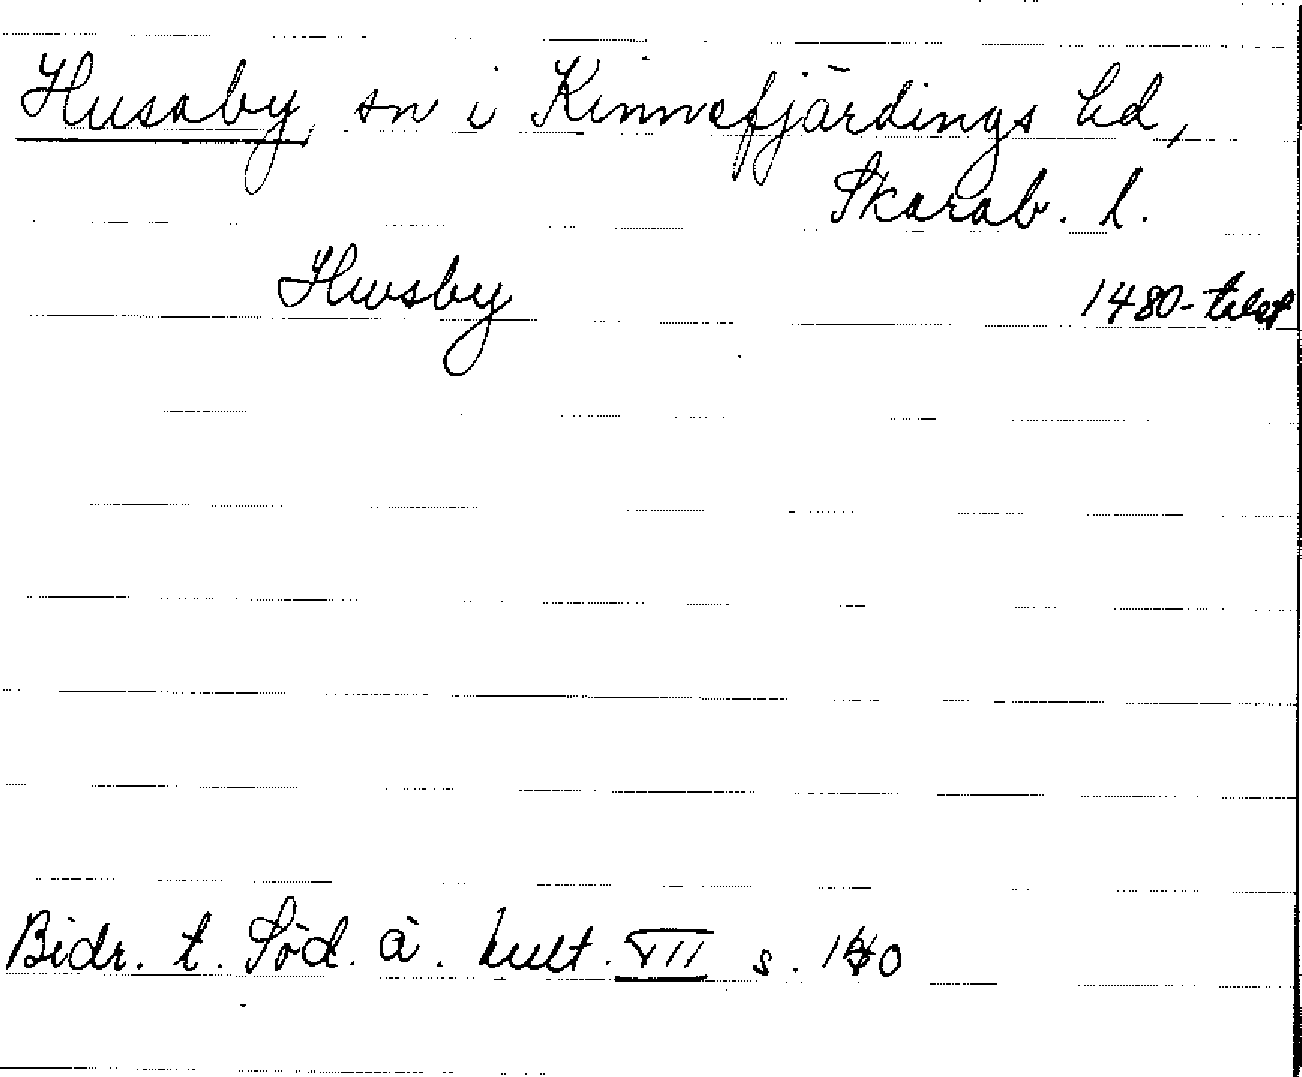 Husaby, sn i Kinnefjärdings hd,
Skarab. l.
Husby 1480-talet
Bidr. t. Söd. ä. kult. VII s.